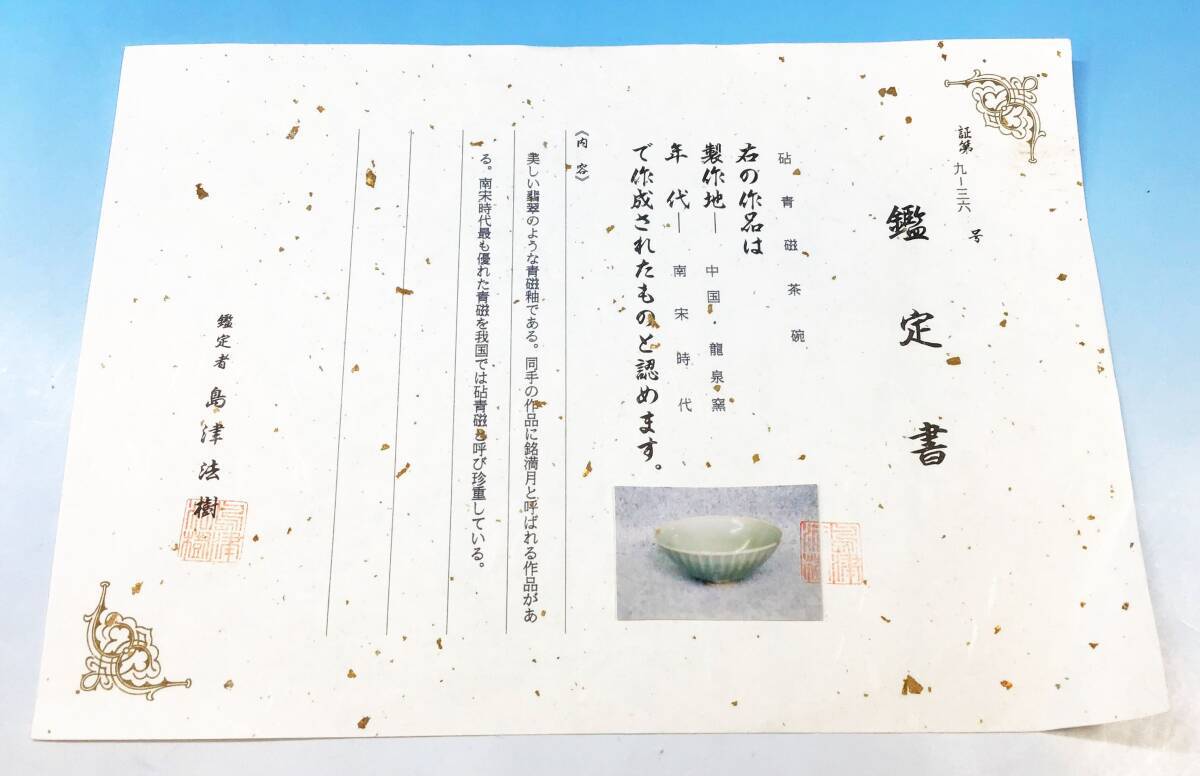 証第 九ー三六 号
鑑定書
砧青磁茶碗
右の作品は
製作地ー 中国・龍泉窯
年代ー 南宋時代
で作成されたものと認めます。
《内容》
美しい翡翠のような青磁釉である。同手の作品に銘満月と呼ばれる作品があ
る。南宋時代最も優れた青磁を我国では砧青磁と呼び珍重している。
鑑定者 島津法樹
島津
法樹